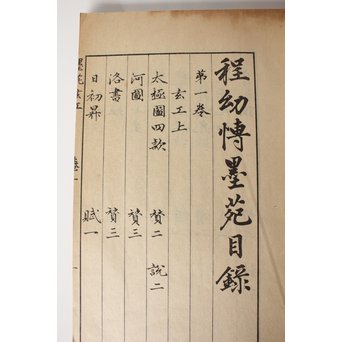 程幼博墨苑目錄
第一卷
玄工上
太極圖四款 贊二 說二
河圖 贊三
洛書 贊三
日初昇 賦一
墨苑玄工 卷一